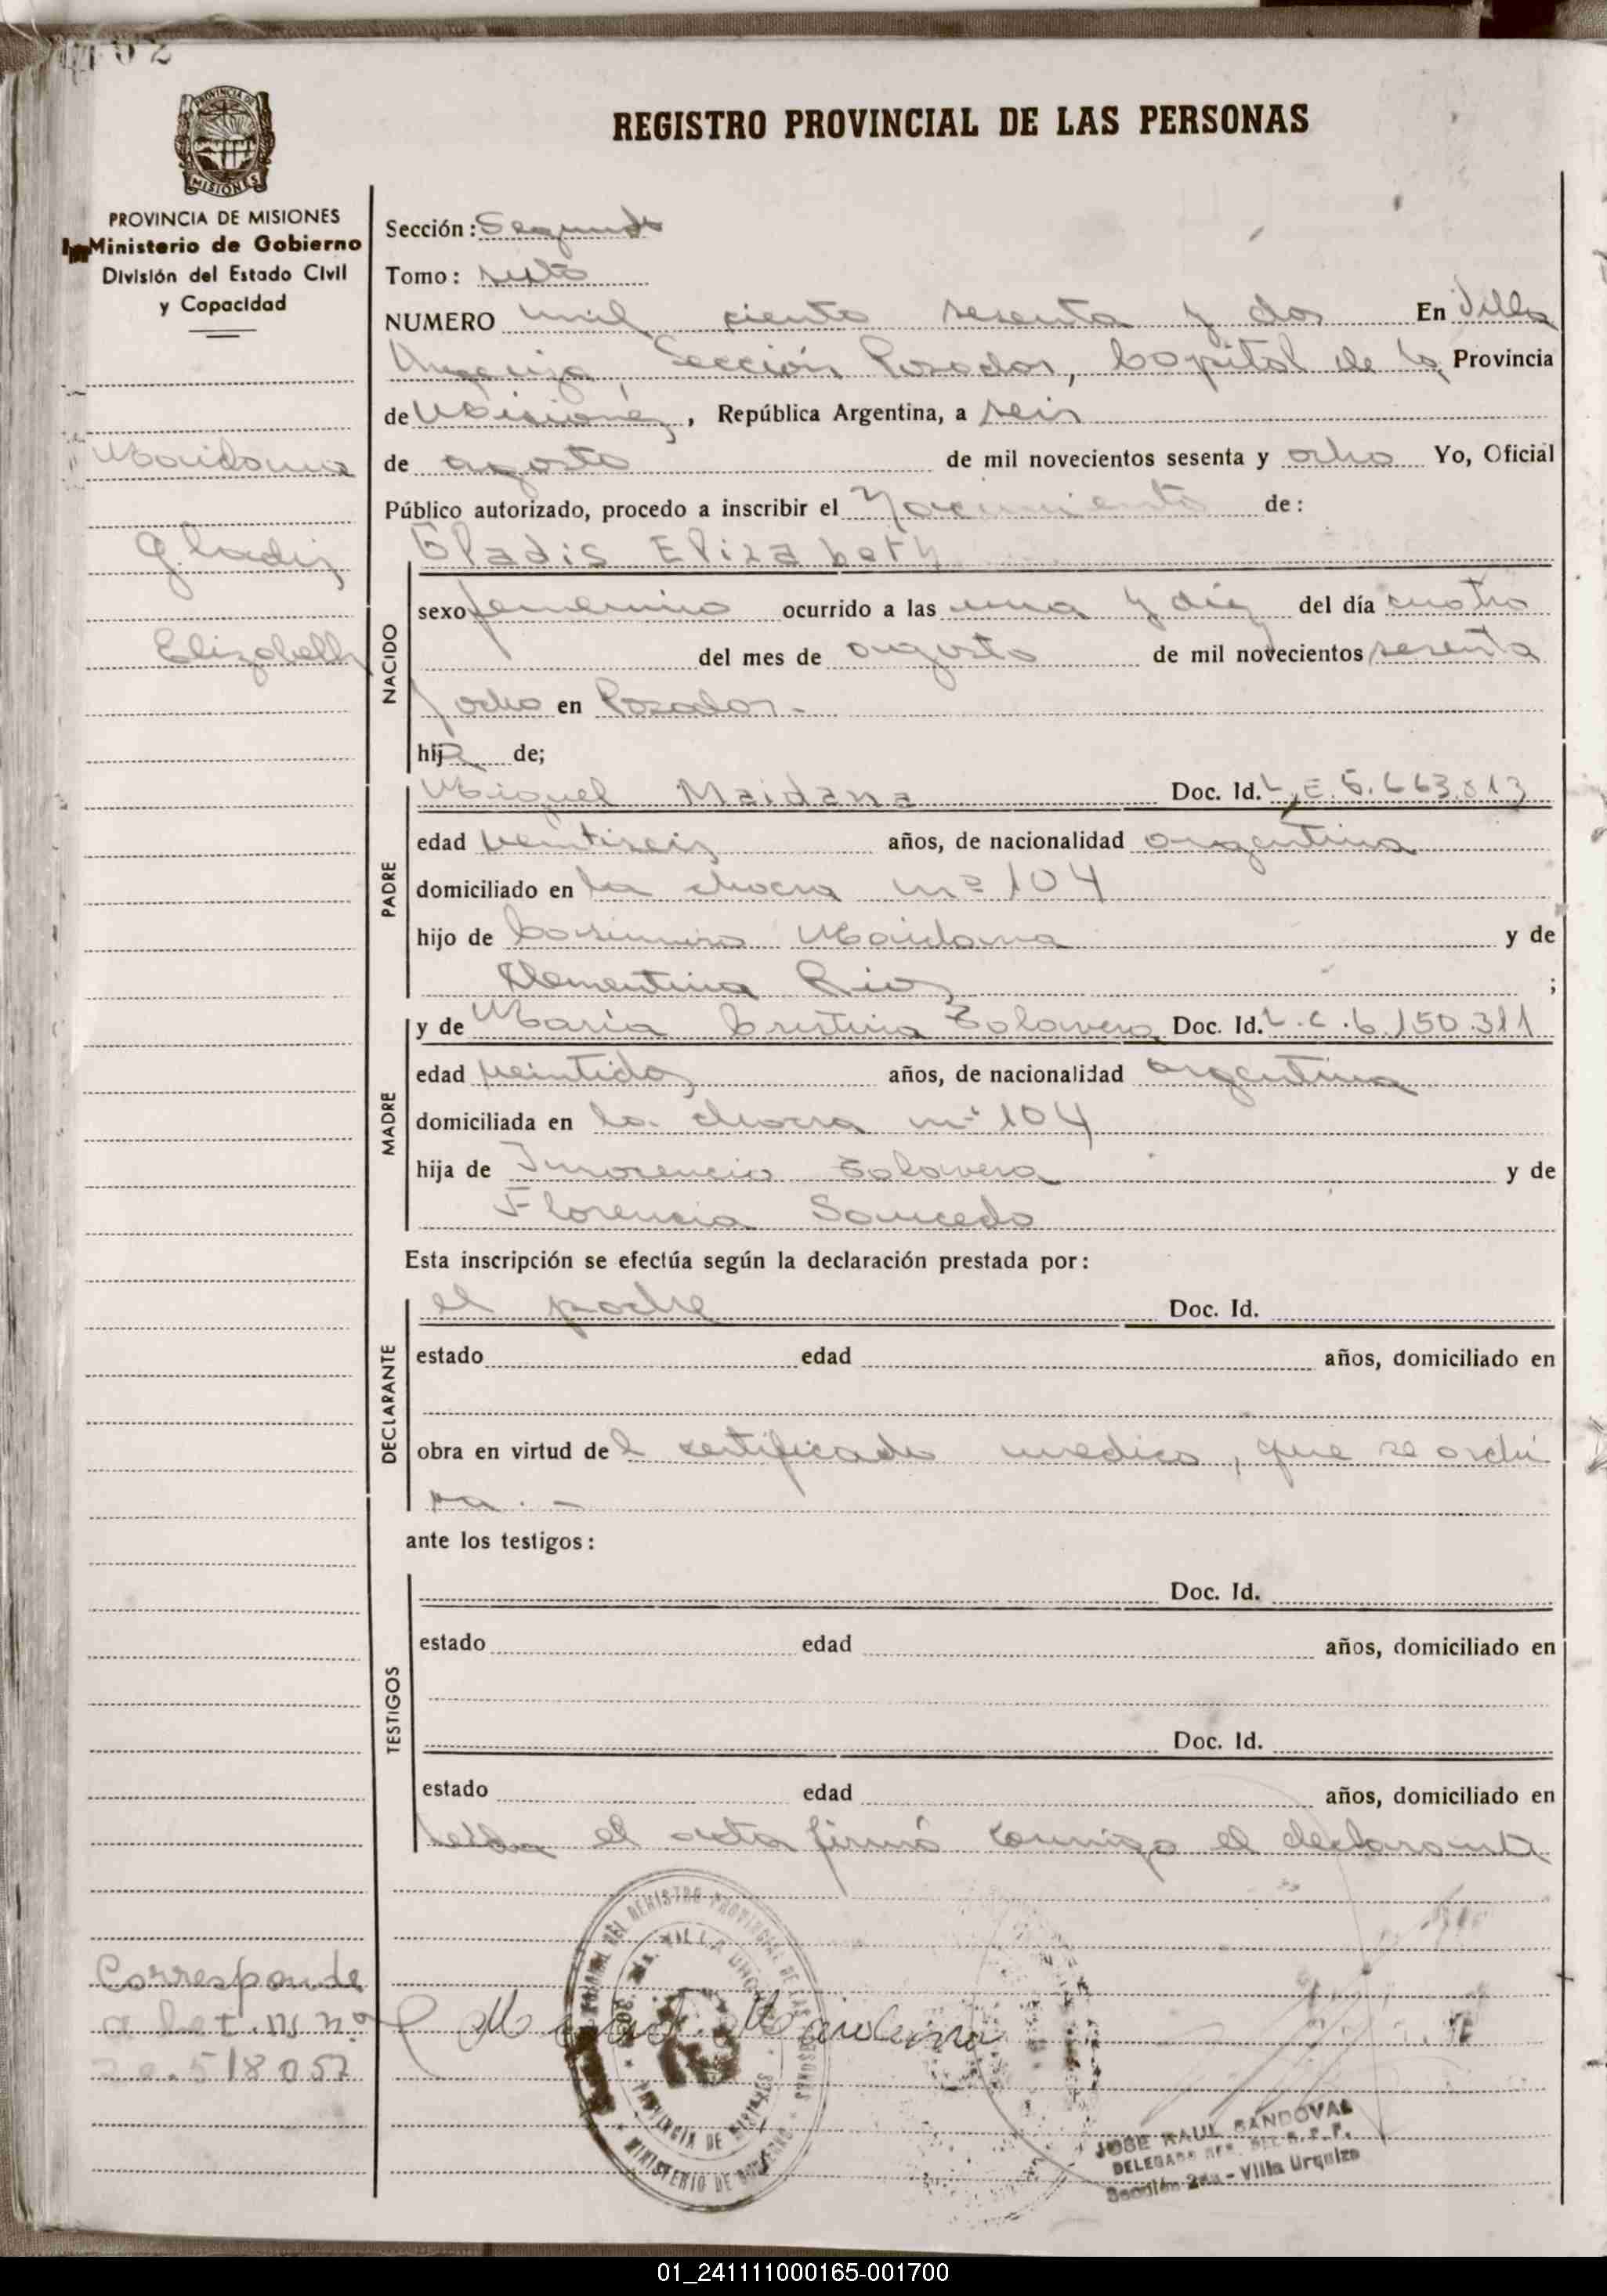 PROVINCIA DE MISIONES
REGISTRO PROVINCIAL DE LAS PERSONAS
PROVINCIA DE MISIONES
Ministerio de Gobierno
División del Estado Civil
y Capacidad
Maidana
Gladis
Elizabeth
Sección: Segunda
Tomo: sexto
NUMERO mil ciento sesenta y dos En Villa
Urquiza, Sección Posadas, Capital de la Provincia
de Misiones, República Argentina, a seis
de agosto de mil novecientos sesenta y ocho Yo, Oficial
Público autorizado, procedo a inscribir el Nacimiento de:
NACIDO
Gladis Elizabeth
sexo femenino ocurrido a las una y diez del día cuatro
del mes de agosto de mil novecientos sesenta
y ocho en Posadas.-
hija de;
PADRE
Miguel Maidana Doc. Id. L.E.
edad veintiseis años, de nacionalidad argentina
domiciliado en la chacra nº 104
hijo de Casimiro Maidana y de
Clementina Rios ;
MADRE
y de Maria Cristina Talavera Doc. Id. L.C. 6.150.311
edad veintidos años, de nacionalidad argentina
domiciliada en la chacra nº 104
hija de Inocencio Talavera y de
Florencia Saucedo
Esta inscripción se efectúa según la declaración prestada por:
DECLARANTE
el padre Doc. Id.
estado edad años, domiciliado en
obra en virtud del certificado medico, que se archi
va.-
ante los testigos:
TESTIGOS
Doc. Id.
estado edad años, domiciliado en
Doc. Id.
estado edad años, domiciliado en
leída el acta firmó conmigo el declarante
Corresponde
a la
20.518052
Maidana
JOSE RAUL SANDOVAL
DELEGADO
Sección 2da - Villa Urquiza
01_241111000165-001700